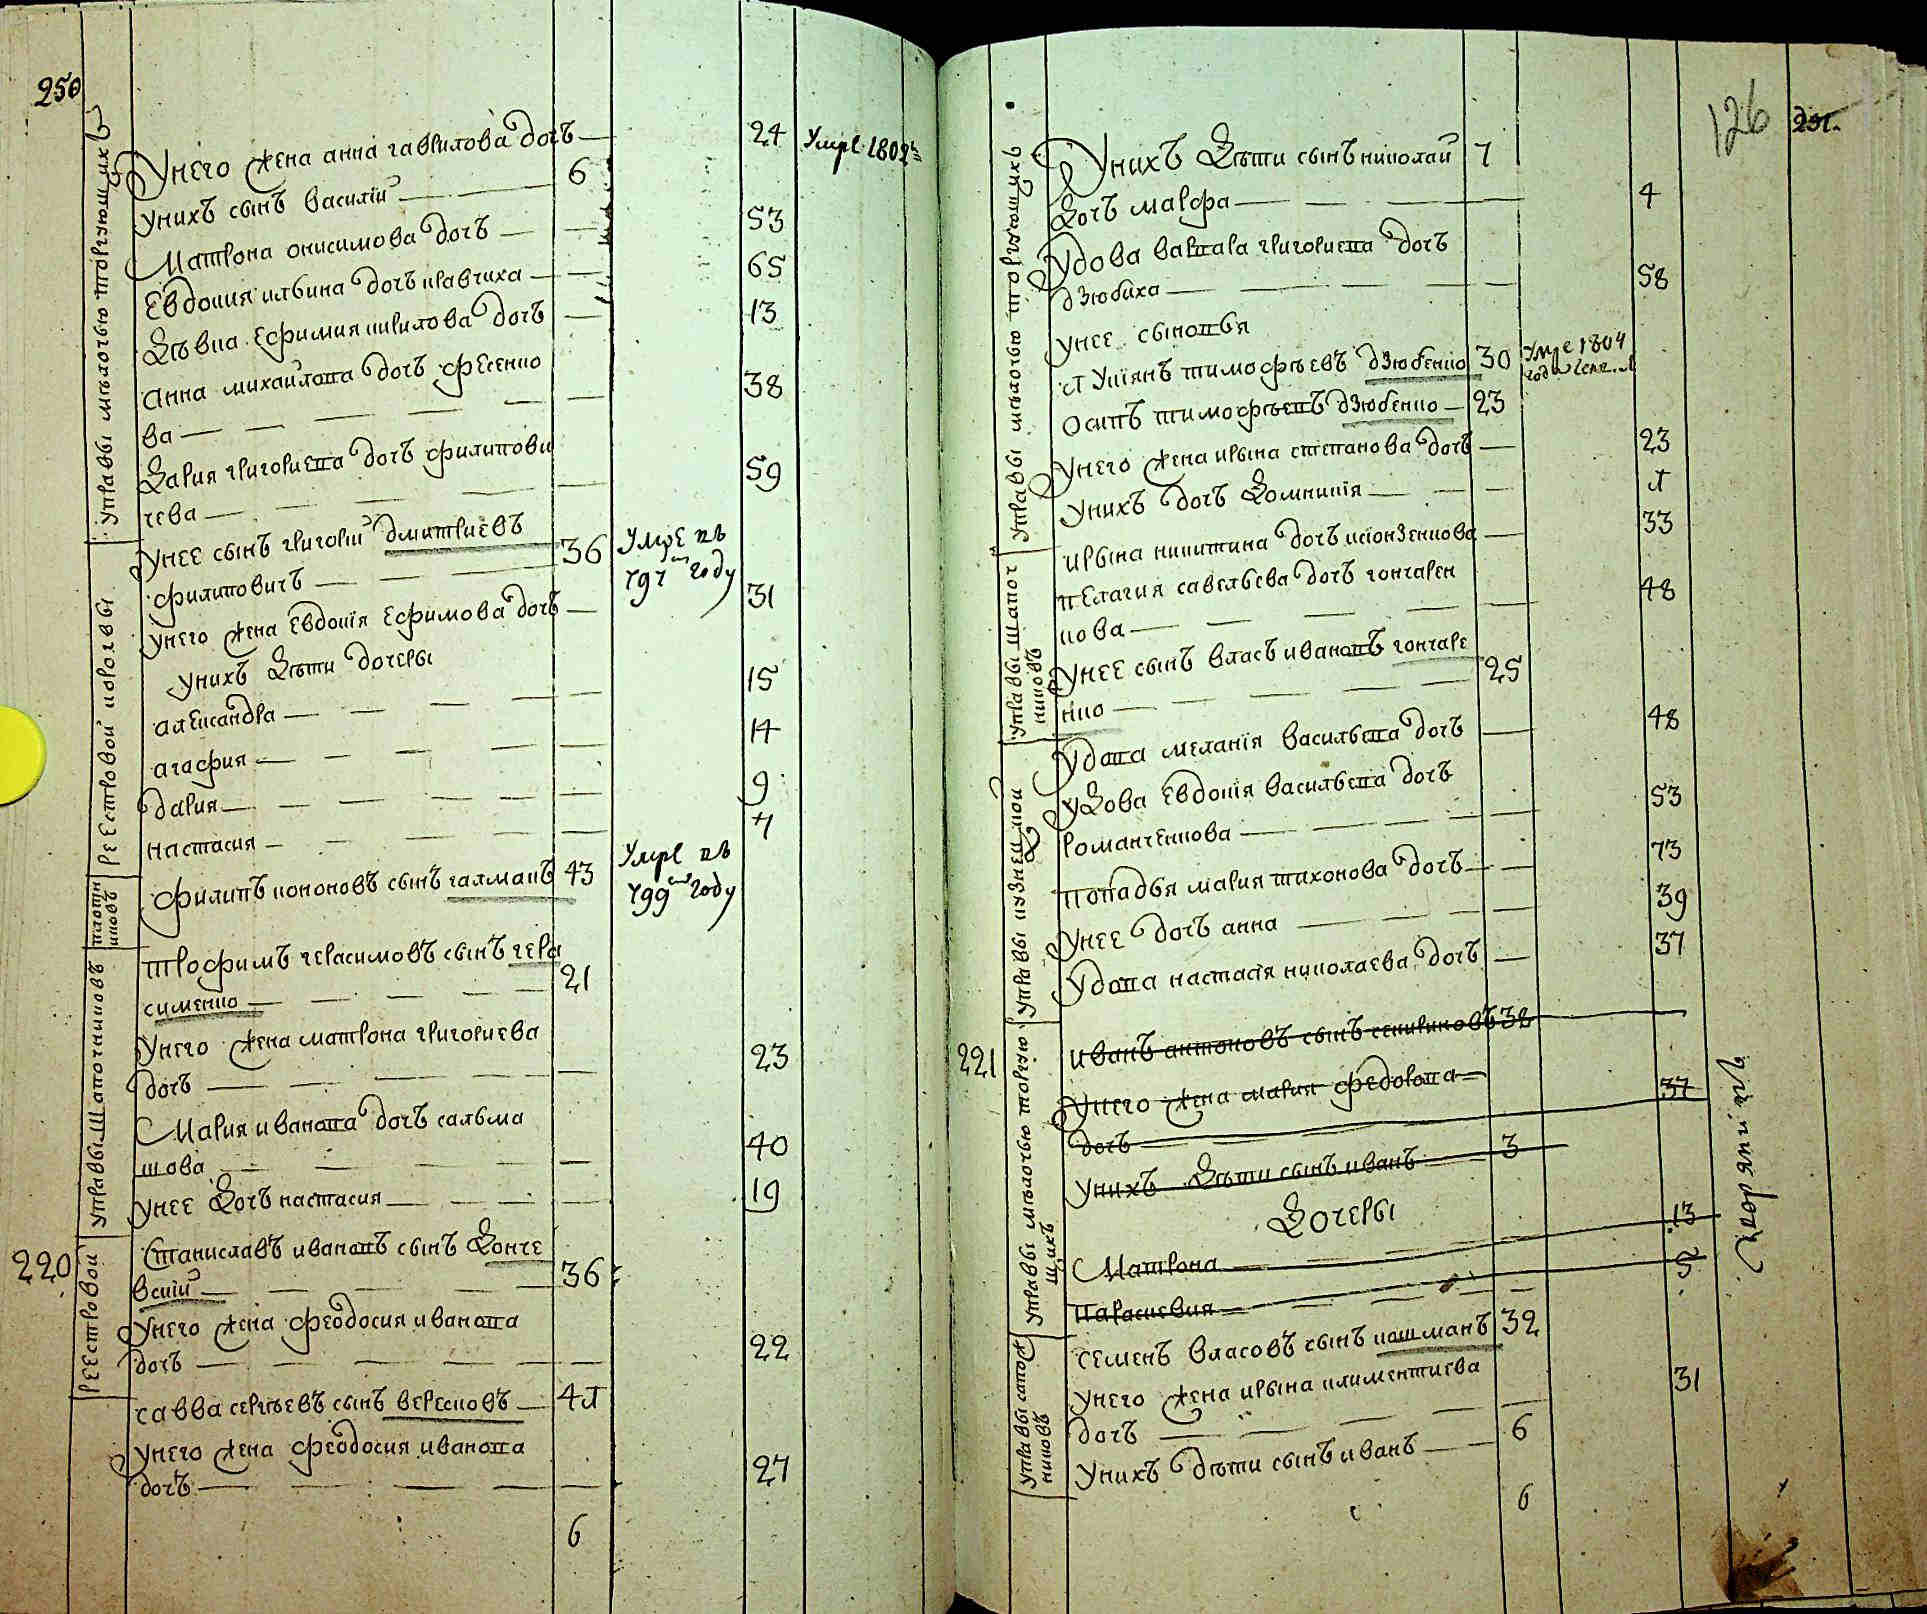 250
управы мѣлочью торгующихъ
Унего жена анна гаврилова дочь 24 Умре 1802
унихъ сынъ василій 6
Матрона онисимова дочь 53
Евдокия илвина дочь кравчиха 65
Дѣвка Ефимия кирилова дочь 13
Анна михайлова дочь фесенко
ва 38
Дария григориева дочь филипови
чева 59
унее сынъ григорій дмитриевъ
филиповичъ 36 Умре въ
791 году
унего жена Евдокія Ефимова дочь 31
унихъ дѣти дочеры
александра 15
агафия 14
дария 9
настасия 4
реестровой короговы
филипъ кононовъ сынъ галманъ 43 Умре въ
799 году
плотн
иковъ
трофимъ герасимовъ сынъ гера
сименко 21
унего жена матрона григориева
дочь 23
Мария иванова дочь салвма
шова 40
унее дочь настасия 19
управы шапочниковъ
220
Станиславъ ивановъ сынъ Донче
вский 36
унего жена феодосия иванова
дочь 22
реестровой
савва сергѣевъ сынъ вересковъ 41
унего жена феодосия иванова
дочь 27
6
126
251.
управы мѣлочью торгующихъ
Унихъ дѣти сынъ николай 7
дочь марфа 4
Удова варвара григориева дочь
дзюбиха 58
унее сыновья
лукіянъ тимофѣевъ дзюбенко 30 Умре 1804
году
Осипъ тимофѣевъ дзюбенко 23
унего жена ирына степанова дочь 23
унихъ дочь Домникія 1
ирына никитина дочь ксіонзенкова 33
управы шапоч
никовъ
пелагия савелвева дочь гончарен
кова 48
унее сынъ власъ ивановъ гончаре
нко 25
Удова меланія василвева дочь 48
управы кузнецкой
удова Евдокія василвева дочь
романченкова 53
попадвя мария тихонова дочь 73
унее дочь анна 39
Удова настасія николаева дочь 37
221
управы мѣлочью торгую
щихъ
иванъ антоновъ сынъ секириновъ 32
унего жена мария федорова
дочь 37
унихъ дѣти сынъ иванъ 3
Дочеры
Матрона 13
параскевия 5
дворянинъ
управы сапож
никовъ
семенъ власовъ сынъ кошманъ 32
унего жена ирына климентиева
дочь 31
унихъ дѣти сынъ иванъ 6
6